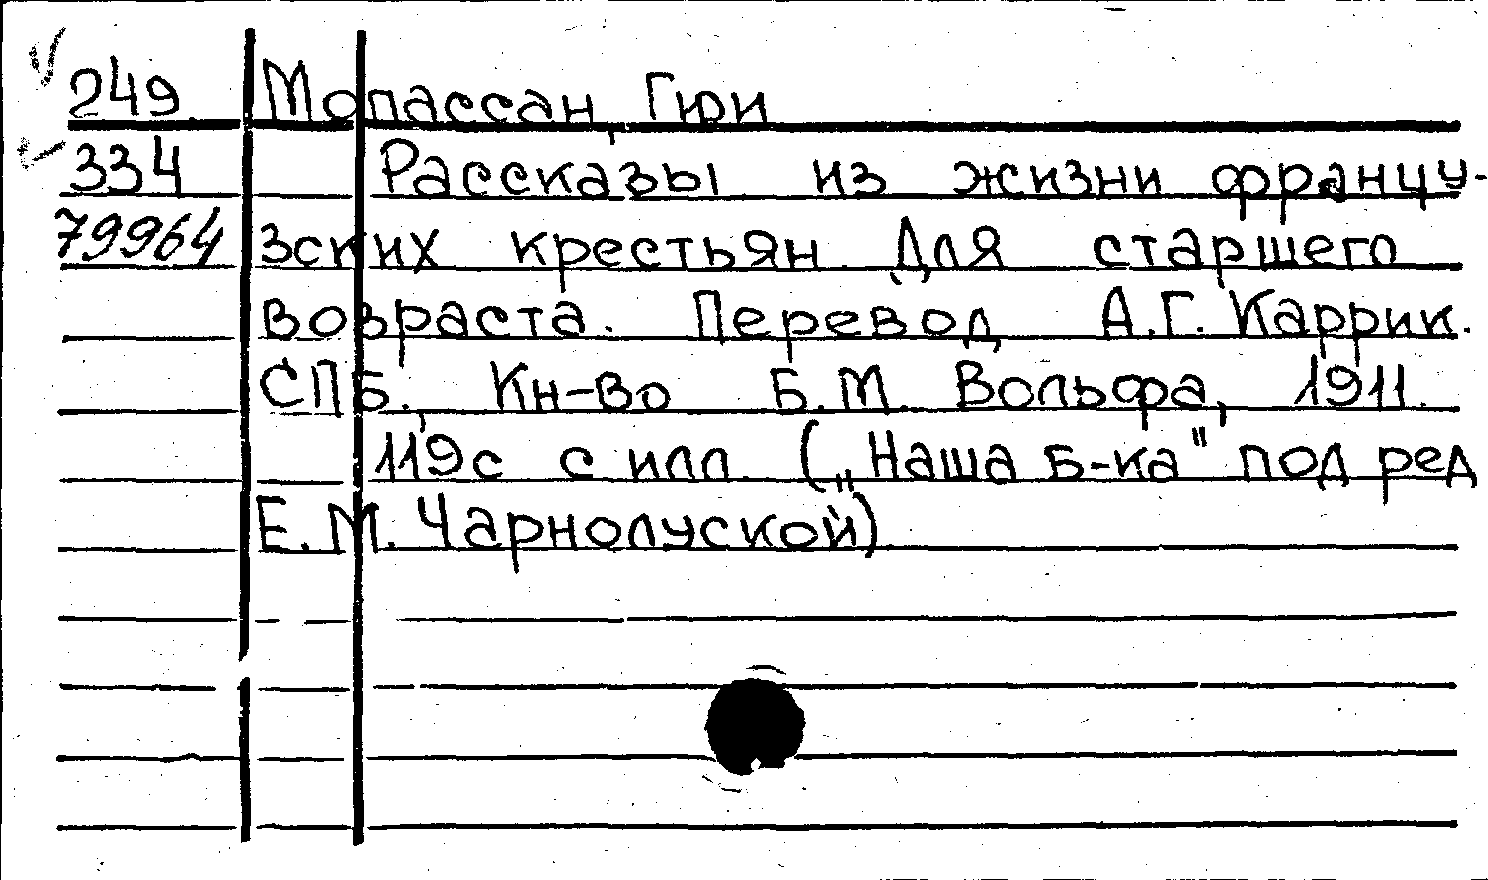 249 Мопассан, Гюи
334 Рассказы из жизни францу-
79964 зских крестьян. Для старшего
возраста. Перевод А.Г. Каррик.
СПБ., Кн-во Б.М. Вольфа, 1911.
119с с илл. („Наша Б-ка" под ред
Е.М. Чарнолуской)